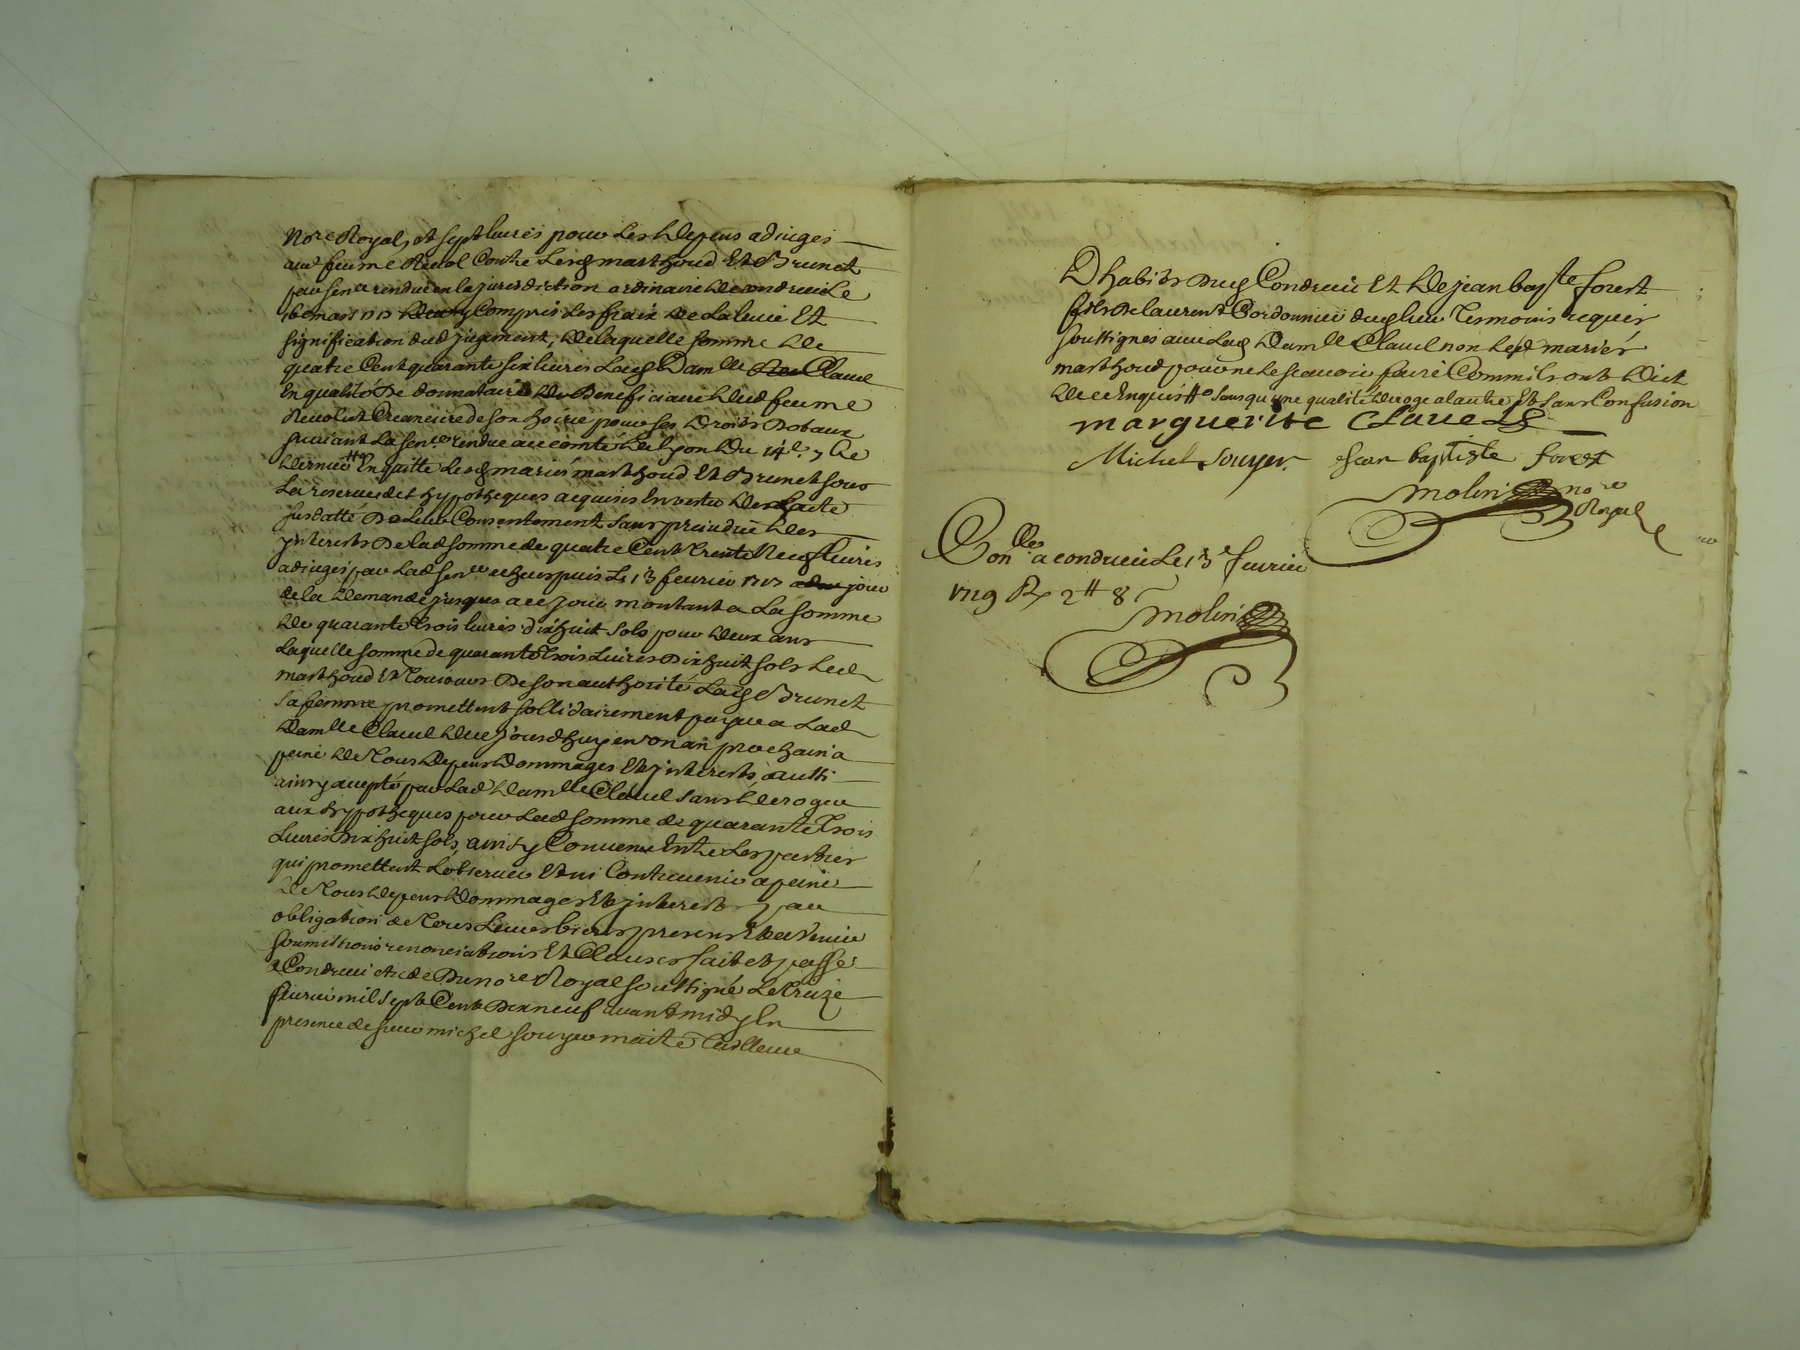 No.re Royal, et sept livres pour les depens adiugés
aud feu me Reuol Contre lesd marthoud Et Brunet
par sen.ce rendue en la jurisdiction ordinaire de condrieu le
mars 1717 Compris les fraix de la leuée Et
signification dud jugement, de laquelle somme de
quatre Cent quarante six liures Lad Dam.lle Clauel
En qualité De donnataire de Beneficiaire dud feu me
Reuol et Creanciere de son hoirie pour ses Droits Dotaux
suiuant La sen.ce rendue au comté de lyon Du 14e 7bre
dernier En quitte Lesd mariés marthoud Et Brunet sous
La reserue des hypotheques acquises En vertu de L'acte
susdatté De Leur Consentement sans prejudice des
jnterests De lad somme de quatre Cent trente Neuf liures
adiuges par Lad sen.ce echeus puis Le 13 feurier 1717 jour
de la Demande jusques a ce jour montant a La somme
de quarante trois liures dixhuit sols pour deux ans
Laquelle somme de quarante trois Liures Dixhuit sols Led
marthoud Et Toujours De son authorité Lad Brunet
sa femme promettent sollidairement payer a Lad
Dam.lle Clauel de ce jourdhuy en vn an prochain a
peine de Tous Depens Dommages Et jnterests aussi
ainsy accepté par Lad Dam.lle Clauel sans deroger
aux hypotheques pour Lad somme de quarante Trois
Liures Dixhuit sols, ainsy Conuenu Entre Les parties
qui promettent L'obseruer Et ni Contreuenir a peine
de Tous depens Dommages Et jnterests par
obligation de Tous Leurs biens presens Et a Venir
soumissions renonciations Et Clauses fait et passé
a Condrieu etude Du no.re Royal soussigné Le treize
feurier mil sept Cent Dix neuf auant midy En
presence de sieur michel souyer maitre Tailleur
Dhabits Dud Condrieu Et de jean bap.te forest
fils De laurent Cordonnier dud lieu Tesmoins requis
soussignés auec Lad Dam.lle Clauel non lesd mariés
marthoud pour ne le scauoir faire Comm ils ont dict
de ce Enquis sans qu une qualité deroge a lautre Et sans Confusion
marguerite Clauel
Michel Souyer jean baptiste forest
molin no.re
Royal
Con.lle a condrieu Le 13e feurier
1719 R 2 tt 8 s
molin